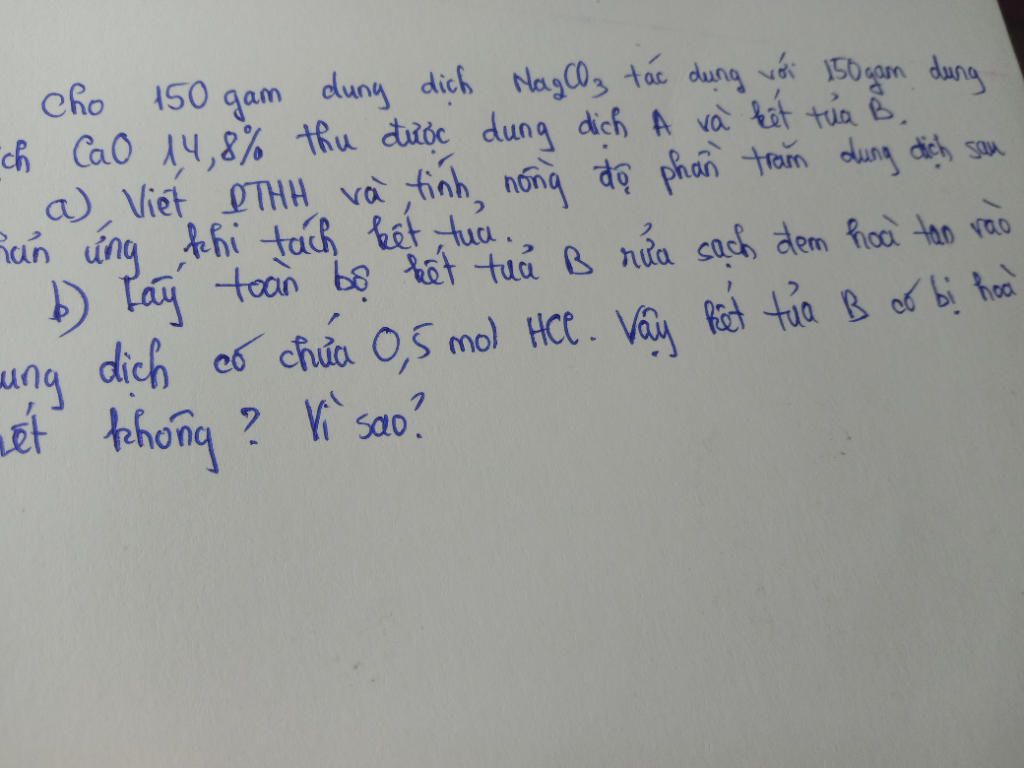 Cho 150 gam dung dịch Na2CO3 tác dụng với 150gam dung
ch CaO 14,8% thu được dung dịch A và kết tủa B.
a) Viết PTHH và tính nồng độ phần trăm dung dịch sau
hản ứng khi tách kết tủa.
b) Lấy toàn bộ kết tuả B rửa sạch đem hoà tan vào
ung dịch có chứa 0,5 mol HCl. Vậy kết tủa B có bị hoà
hết không? Vì sao?